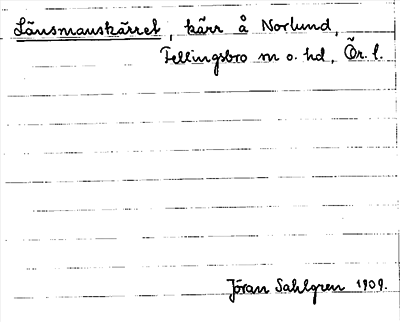 Länsmanskärret, kärr å Norlund,
Fellingsbro sn o. hd, Ör. l.
Jöran Sahlgren 1909.